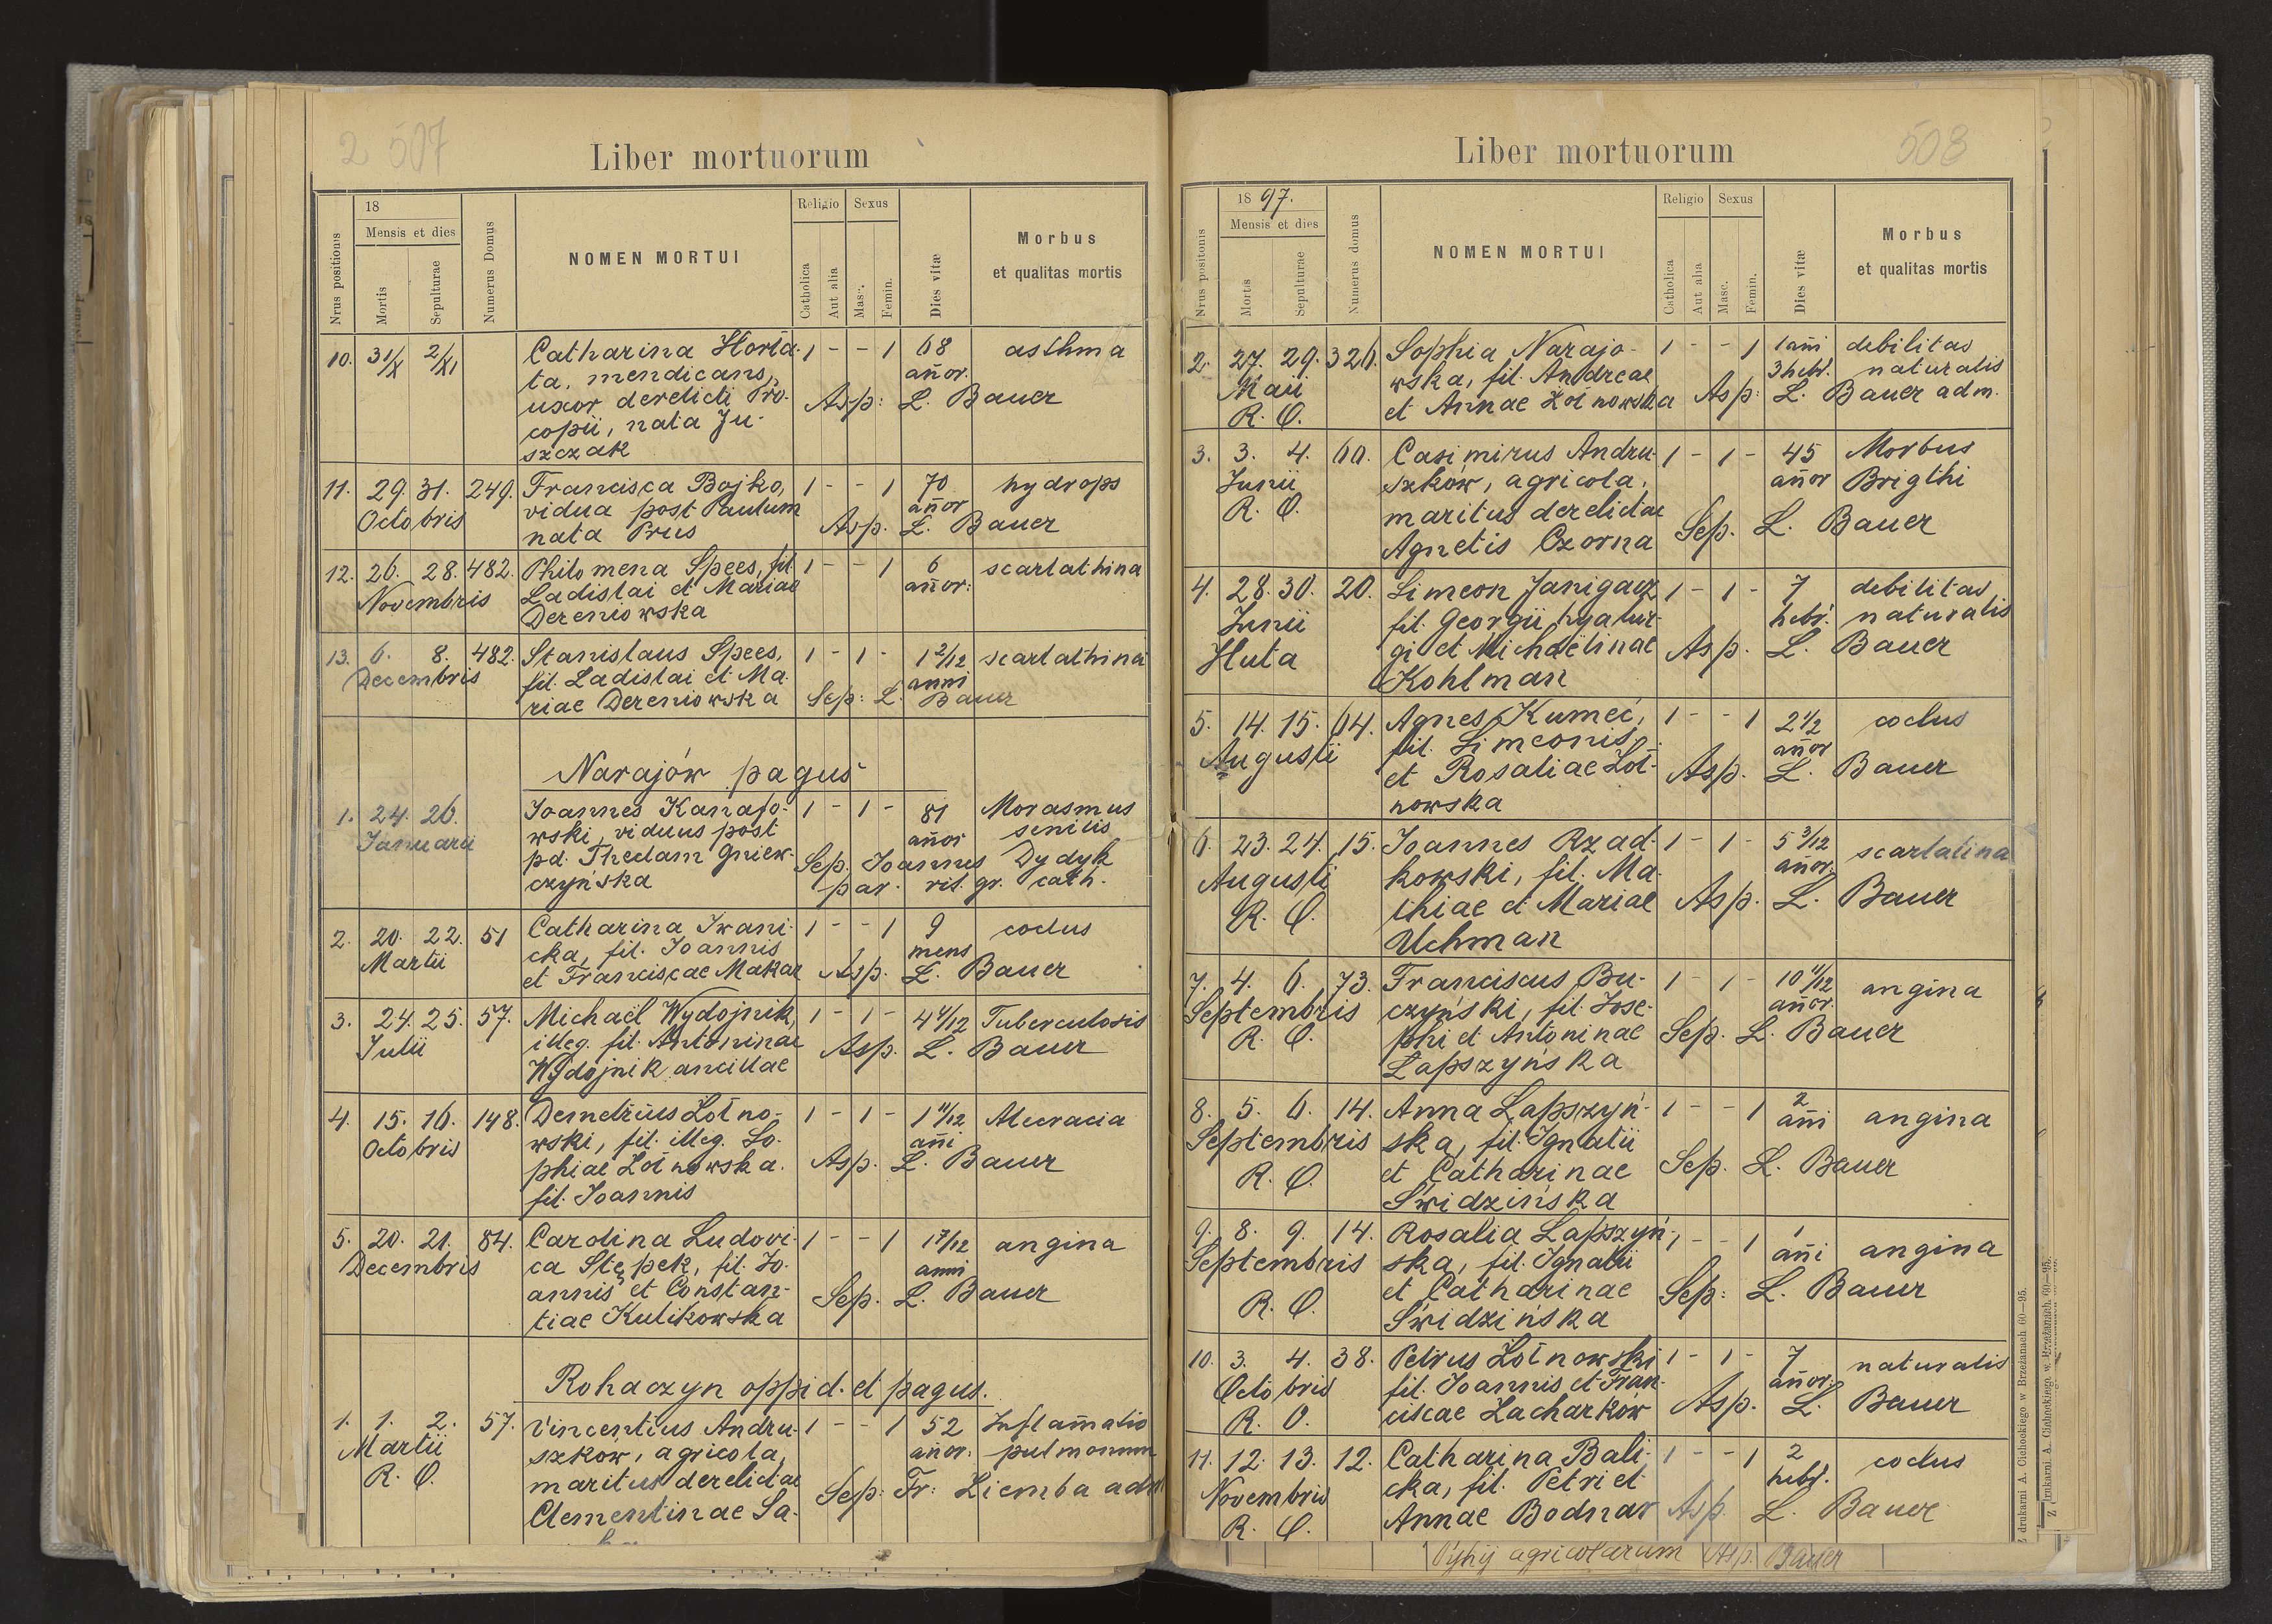 2 507
Liber mortuorum
Nrus positionis
18
Mensis et dies
Mortis
Sepulturae
Numerus Domus
NOMEN MORTUI
Religio
Catholica
Aut alia
Sexus
Masc.
Femin.
Dies vitæ
Morbus
et qualitas mortis
10. 31/X 2/XI Catharina Horła- 1 - - 1 68 asthma
ta, mendicans, añor.
uxor derelicti Pro- Asp: L. Bauer
copii, nata Ju-
szczak
11. 29. 31. 249. Francisca Bojko, 1 - - 1 70 hydrops
Octobris vidua post Paulum añor
nata Prus Asp. L. Bauer
12. 26. 28. 482. Philomena Spees, fil. 1 - - 1 6 scarlathina
Novembris Ladislai et Mariae añor:
Dereniowska
13. 6. 8. 482. Stanislaus Spees, 1 - 1 - 1 2/12 scarlathina
Decembris fil. Ladislai et Ma- anni
riae Dereniowska Sep: L. Bauer
Narajów pagus
1. 24. 26. Joannes Kanafo- 1 - 1 - 81 Morasmus
Januarii wski, viduus post añor senilis
pd. Theclam Gniew- Sep. Joannes Dydyk
czyńska par. rit. gr. cath.
2. 20. 22. 51 Catharina Iwani- 1 - - 1 9 coclus
Martii cka, fil. Joannis mens
et Franciscae Makar Asp. L. Bauer
3. 24. 25. 57. Michaël Wydojnik, 1 - 1 - 4 4/12 Tuberculosis
Julii illeg. fil. Antoninae Asp. L. Bauer
Wydojnik ancillae
4. 15. 16. 148. Demetrius Żołno- 1 - 1 - 1 11/12
Octobris wski, fil. illeg. So- añi
phiae Żołnowska. Asp. L. Bauer
fil. Joannis
5. 20. 21. 84. Carolina Ludovi- 1 - - 1 17/12 angina
Decembris ca Stępek, fil. Jo- anni
annis et Constan- Sep. L. Bauer
tiae Kulikowska
Rohaczyn oppid. et pagus.
1. 1. 2. 57. Vincentius Andru- 1 - - 1 52 Inflam̄atio
Martii szkow, agricola, añor. pulmonum
R. O. maritus derelictae Sep: Fr: Ziemba adm
Clementinae Sa-
508
Liber mortuorum
Nrus positionis
18 97.
Mensis et dies
Mortis
Sepulturae
Numerus domus
NOMEN MORTUI
Religio
Catholica
Aut alia
Sexus
Masc.
Femin.
Dies vitæ
Morbus
et qualitas mortis
2. 27. 29. 326. Sophia Narajo- 1 - - 1 1 añi debilitas
Maii wska, fil. Andreae 3 hebd. naturalis
R. O. et Annae Żołnowska Asp: L. Bauer adm.
3. 3. 4. 60. Casimirus Andru- 1 - 1 - 45 Morbus
Junii szków, agricola, añor Brigthi
R. O. maritus derelictae Sep. L. Bauer
Agnetis Czorna
4. 28. 30. 20. Simeon Janigacz 1 - 1 - 7 debilitas
Junii fil. Georgii hyalur- hebd. naturalis
Huta gi et Michaëlinae Asp. L. Bauer
Kohlman
5. 14. 15. 64. Agnes Kumeć, 1 - - 1 2 1/2 coclus
Augusti fil. Simeonis añor
et Rosaliae Żoł- Asp. L. Bauer
nowska
6. 23. 24. 15. Joannes Rzad- 1 - 1 - 5 3/12 scarlatina
Augusti kowski, fil. Ma- añor.
R. O. thiae et Mariae Asp. L. Bauer
Uchman
7. 4. 6. 73. Franciscus Bu- 1 - 1 - 10 11/12 angina
Septembris czyński, fil. Jose- añor.
R. O. phi et Antoninae Sep. L. Bauer
Łapszyńska
8. 5. 6. 14. Anna Łapszyń- 1 - - 1 2 angina
Septembris ska, fil. Ignatii añi
R. O. et Catharinae Sep. L. Bauer
Świdzińska
9. 8. 9. 14. Rosalia Łapszyń- 1 - - 1 1 angina
Septembris ska, fil. Ignatii añi
R. O. et Catharinae Sep: L. Bauer
Świdzińska
10. 3. 4. 38. Petrus Żołnowski 1 - 1 - 7 naturalis
Octobris fil. Joannis et Fran- añor.
R. O. ciscae Zacharkow Asp. L. Bauer
11. 12. 13. 12. Catharina Bali- 1 - - 1 2 coclus
Novembris cka, fil. Petri et hebd.
R. O. Annae Bodnar Asp. L. Bauer
agricolarum Asp. Bauer
Z drukarni A. Cichockiego w Brzeżanach 60—95.
Z drukarni A. Cichockiego w Brzeżanach 60—95.